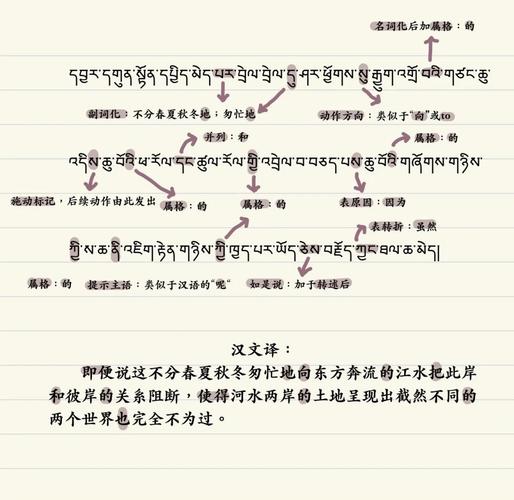 名词化后加属格：的
དབྱར་དགུན་སྟོན་དཔྱིད་མེད་པར་བྲེལ་བྲེལ་དུ་ཤར་ཕྱོགས་སུ་རྒྱུག་འགྲོ་བའི་གཙང་ཆུ་
副词化：不分春夏秋冬地；匆忙地
动作方向：类似于“向”或to
并列：和
属格：的
འདིས་ཆུ་བོའི་ཕ་རོལ་དང་ཚུལ་རོལ་གྱི་འབྲེལ་བ་བཅད་པས་ཆུ་བོའི་གཞོགས་གཉིས་
施动标记，后续动作由此发出
属格：的
属格：的
表原因：因为
表转折：虽然
ཀྱི་ས་ཆ་ནི་འཇིག་རྟེན་གཉིས་ཀྱི་ཁྱད་པར་ཡོད་ཅེས་བརྗོད་ཀྱང་ཐལ་ཆ་མེད།
属格：的
提示主语：类似于汉语的“呢”
如是说：加于转述后
汉文译：
即便说这不分春夏秋冬匆忙地向东方奔流的江水把此岸
和彼岸的关系阻断，使得河水两岸的土地呈现出截然不同的
两个世界也完全不为过。